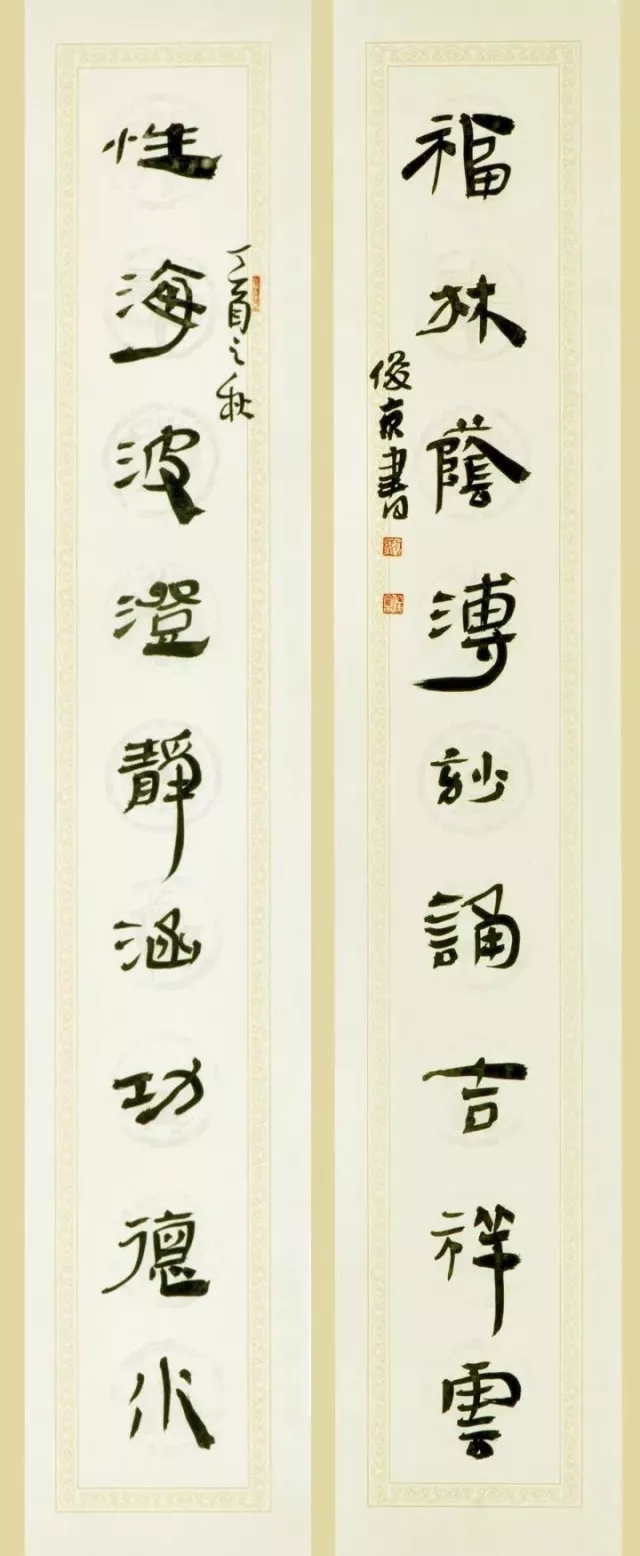 福林蔭溥玅誦吉祥雲
俊京書
丁酉之秋
性海波澄靜涵功德水